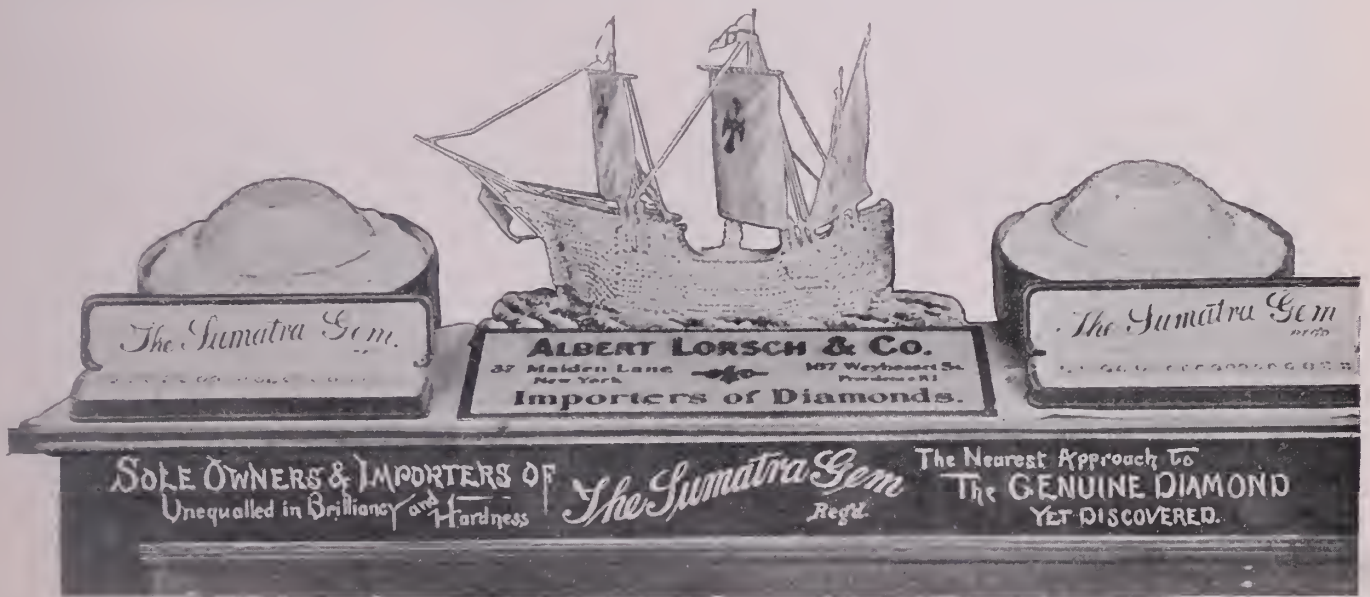 The Sumatra Gem.
ALBERT LORSCH & CO.
37 Maiden Lane
New York
167 Weybosset St.
Providence R.I.
Importers of Diamonds.
The Sumatra Gem
REG'D
SOLE OWNERS & IMPORTERS OF
Unequalled in Brilliancy and Hardness
The Sumatra Gem
Reg'd.
The Nearest Approach To
The GENUINE DIAMOND
YET DISCOVERED.